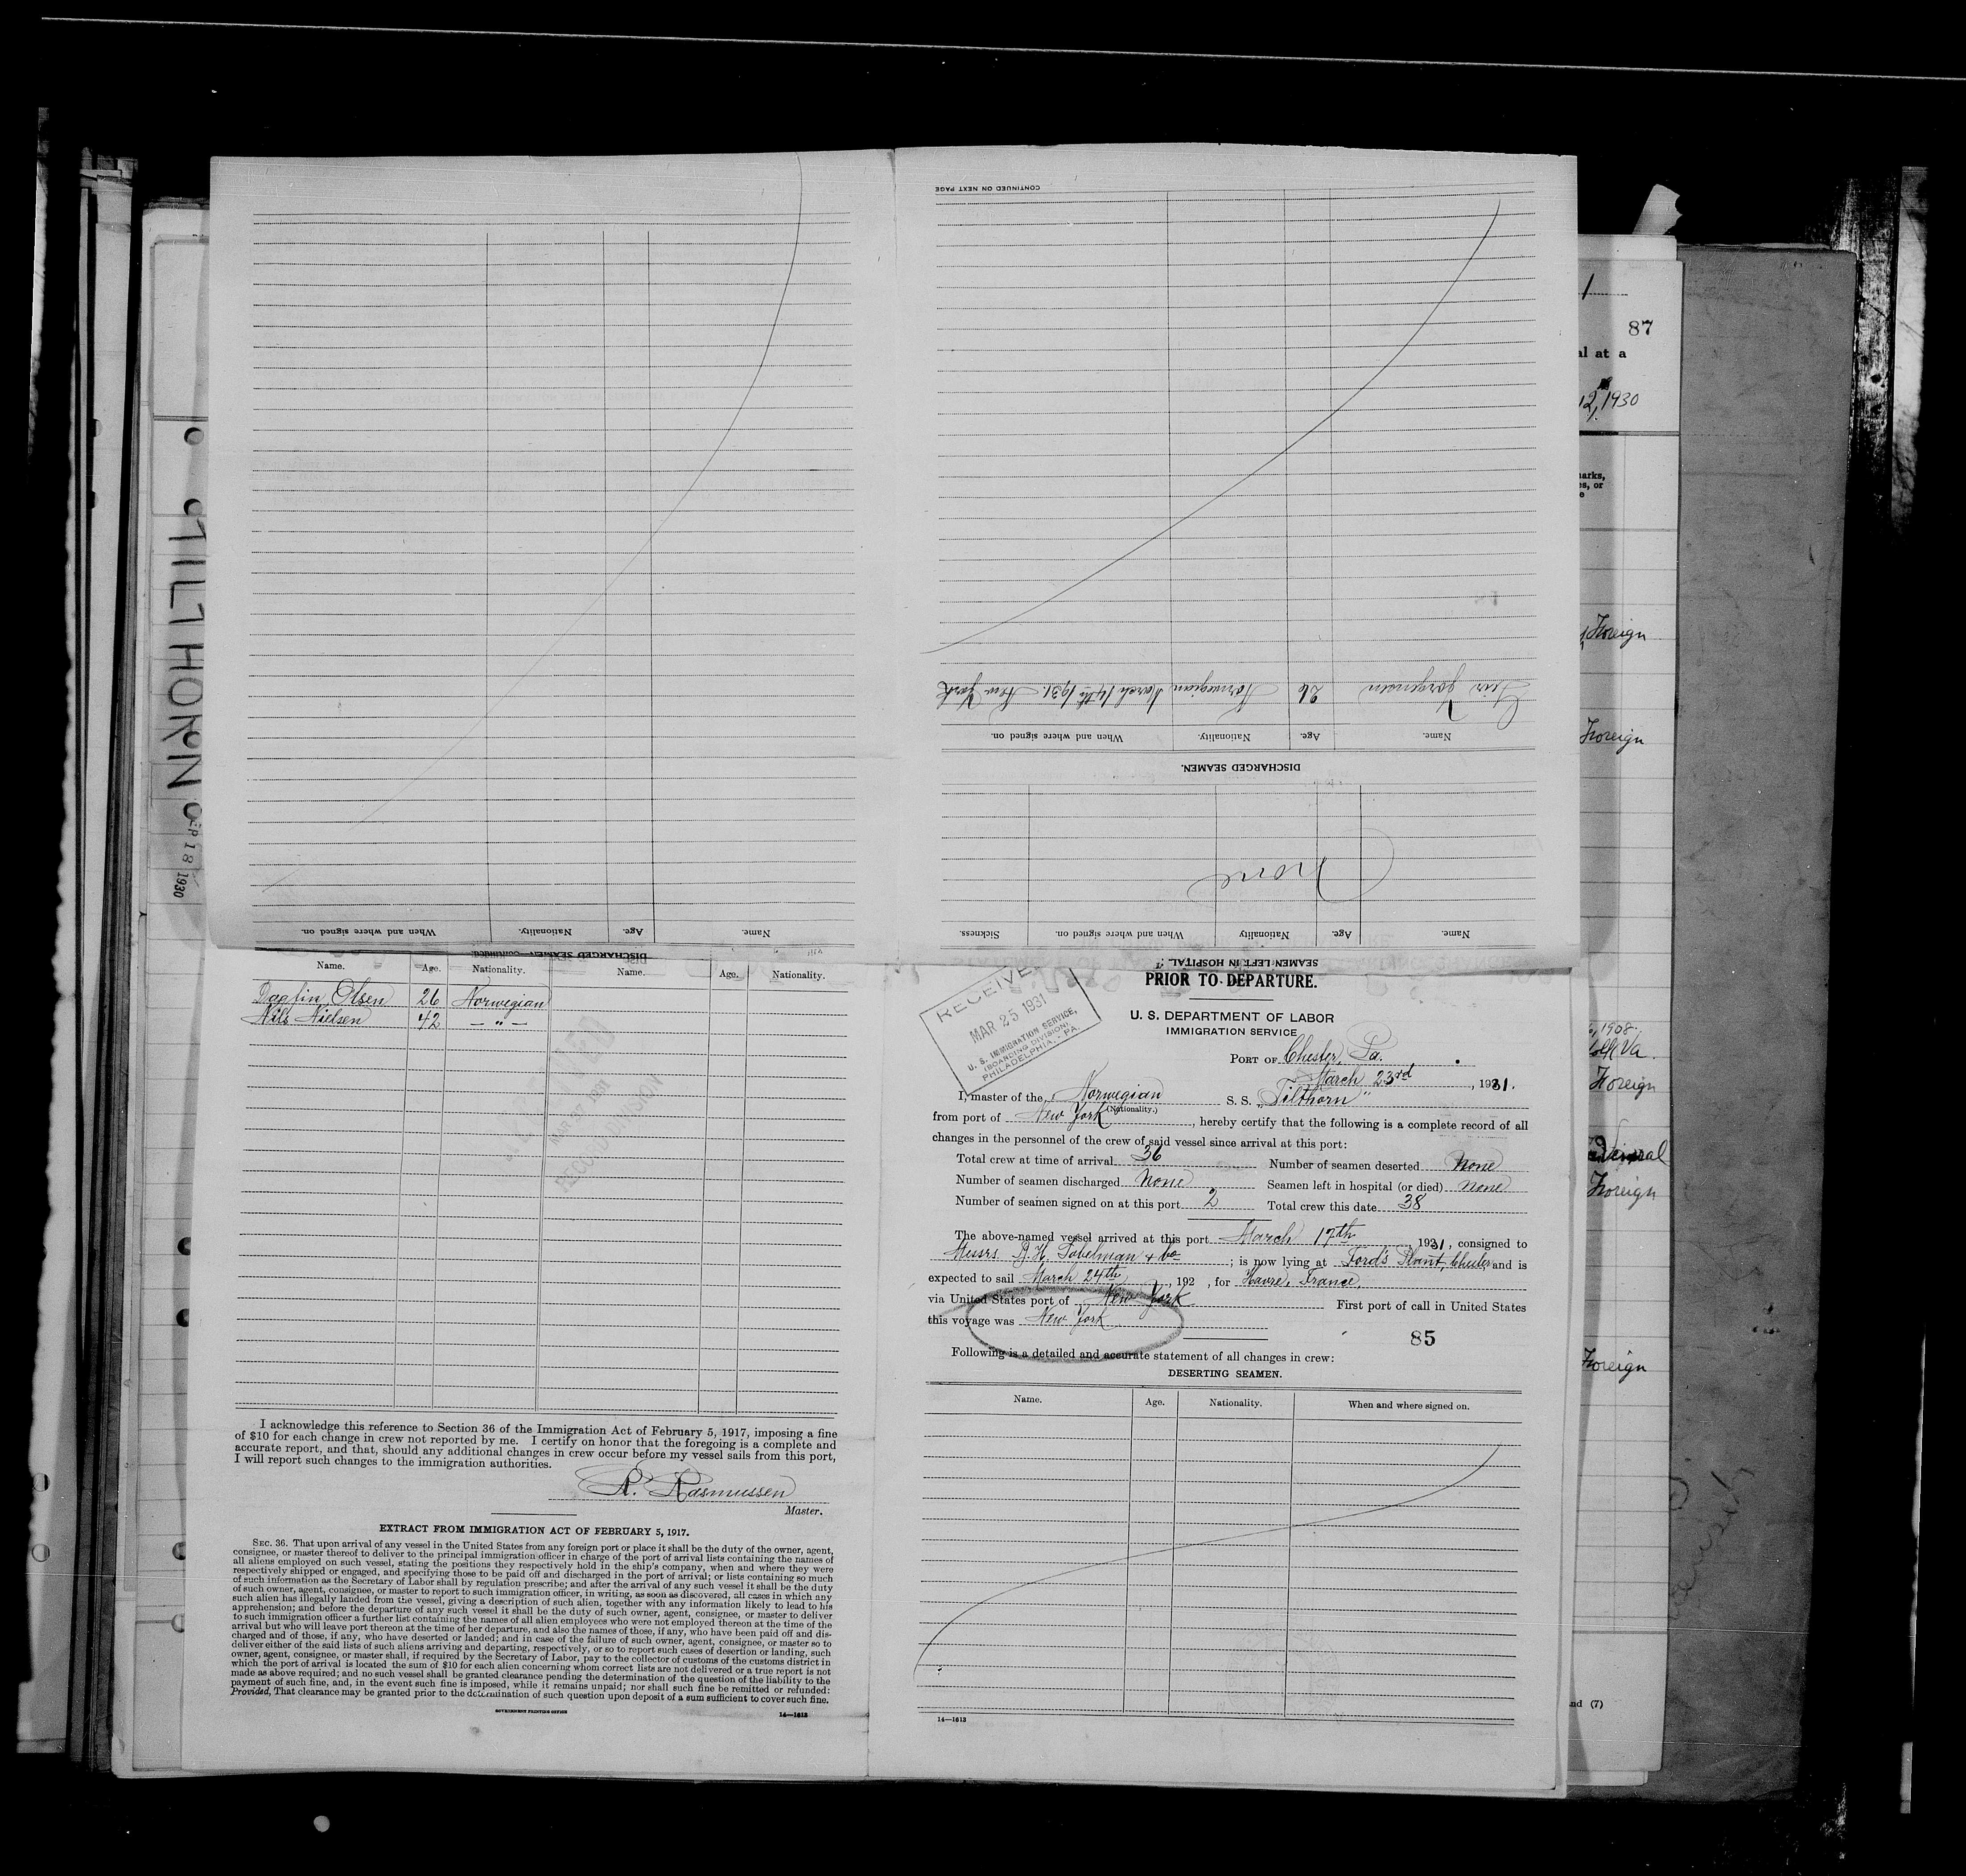 CONTINUED ON NEXT PAGE
Jorgensen 26 Norwegian March 14th 1931. New York
Name. Age. Nationality. When and where signed on.
DISCHARGED SEAMEN.
None
Name. Age. Nationality When and where signed on. Sickness.
SEAMEN LEFT IN HOSPITAL.
Name. Age. Nationality. When and where signed on.
DISCHARGED SEAMEN—Continued.
Name. Age. Nationality. Name. Age. Nationality.
Olsen 26 Norwegian
Nils Nielsen 42 — " —
MAR 27 1931
RECORD DIVISION
I acknowledge this reference to Section 36 of the Immigration Act of February 5, 1917, imposing a fine
of $10 for each change in crew not reported by me. I certify on honor that the foregoing is a complete and
accurate report, and that, should any additional changes in crew occur before my vessel sails from this port,
I will report such changes to the immigration authorities.
R. Rasmussen
Master.
EXTRACT FROM IMMIGRATION ACT OF FEBRUARY 5, 1917.
SEC. 36. That upon arrival of any vessel in the United States from any foreign port or place it shall be the duty of the owner, agent,
consignee, or master thereof to deliver to the principal immigration officer in charge of the port of arrival lists containing the names of
all aliens employed on such vessel, stating the positions they respectively hold in the ship's company, when and where they were
respectively shipped or engaged, and specifying those to be paid off and discharged in the port of arrival; or lists containing so much
of such information as the Secretary of Labor shall by regulation prescribe; and after the arrival of any such vessel it shall be the duty
of such owner, agent, consignee, or master to report to such immigration officer, in writing, as soon as discovered, all cases in which any
such alien has illegally landed from the vessel, giving a description of such alien, together with any information likely to lead to his
apprehension; and before the departure of any such vessel it shall be the duty of such owner, agent, consignee, or master to deliver
to such immigration officer a further list containing the names of all alien employees who were not employed thereon at the time of the
arrival but who will leave port thereon at the time of her departure, and also the names of those, if any, who have been paid off and dis-
charged and of those, if any, who have deserted or landed; and in case of the failure of such owner, agent, consignee, or master so to
deliver either of the said lists of such aliens arriving and departing, respectively, or so to report such cases of desertion or landing, such
owner, agent, consignee, or master shall, if required by the Secretary of Labor, pay to the collector of customs of the customs district in
which the port of arrival is located the sum of $10 for each alien concerning whom correct lists are not delivered or a true report is not
made as above required; and no such vessel shall be granted clearance pending the determination of the question of the liability to the
payment of such fine, and, in the event such fine is imposed, while it remains unpaid; nor shall such fine be remitted or refunded:
Provided, That clearance may be granted prior to the determination of such question upon deposit of a sum sufficient to cover such fine.
GOVERNMENT PRINTING OFFICE 14—1613
PRIOR TO DEPARTURE.
RECEIVED
MAR 25 1931
U. S. IMMIGRATION SERVICE,
(BOARDING DIVISION)
PHILADELPHIA, - PA.
U. S. DEPARTMENT OF LABOR
IMMIGRATION SERVICE
PORT OF Chester, Pa.
March 23rd, 1931.
I, master of the Norwegian S. S. "Tilthorn"
(Nationality.)
from port of New York, hereby certify that the following is a complete record of all
changes in the personnel of the crew of said vessel since arrival at this port:
Total crew at time of arrival 36 Number of seamen deserted None
Number of seamen discharged None Seamen left in hospital (or died) None
Number of seamen signed on at this port 2 Total crew this date 38
The above-named vessel arrived at this port March 17th, 1931, consigned to
Messrs. Tobelman & Co; is now lying at Ford's Plant, Chester and is
expected to sail March 24th, 192 , for Havre, France,
via United States port of New York First port of call in United States
this voyage was New York
85
Following is a detailed and accurate statement of all changes in crew:
DESERTING SEAMEN.
Name. Age. Nationality. When and where signed on.
14—1613
TILTHORN
SEP 18 1930
87
al at a
12, 1930
marks,
es, or
e
Foreign
Foreign
1908.
Va.
Foreign
Foreign
Foreign
and (7)